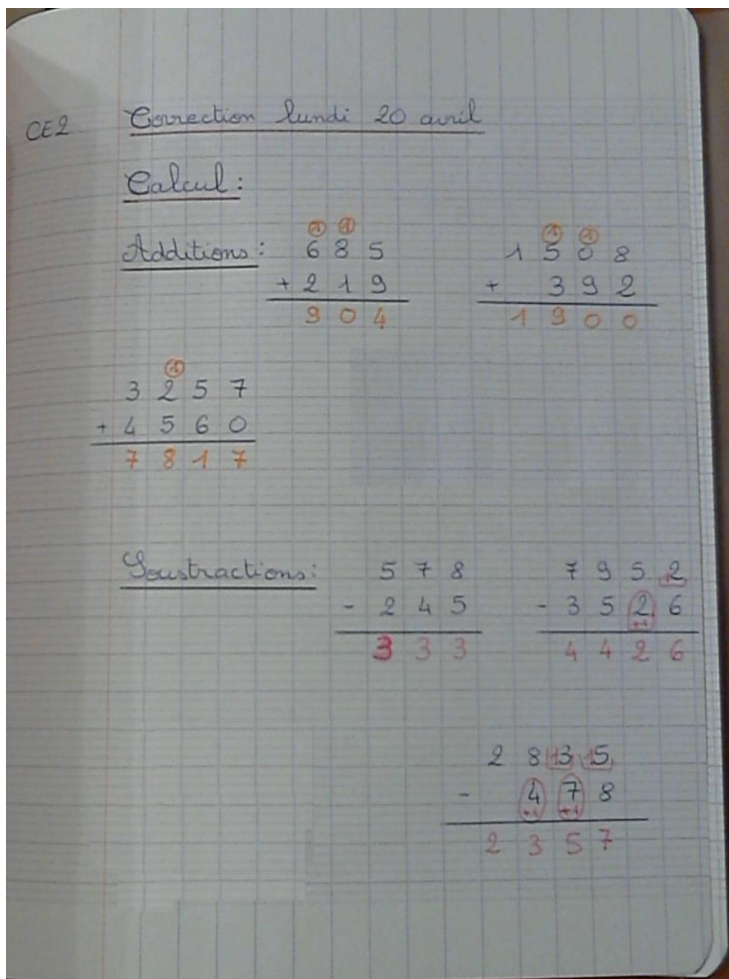 CE2 Correction lundi 20 avril
Calcul :
① ①
Additions : 6 8 5
+ 2 1 9
9 0 4
① ①
1 5 0 8
+ 3 9 2
1 9 0 0
①
3 2 5 7
+ 4 5 6 0
7 8 1 7
Soustractions : 5 7 8
- 2 4 5
3 3 3
7 9 5 12
- 3 5 2 6
+1
4 4 2 6
2 8 13 15
- 4 7 8
+1 +1
2 3 5 7